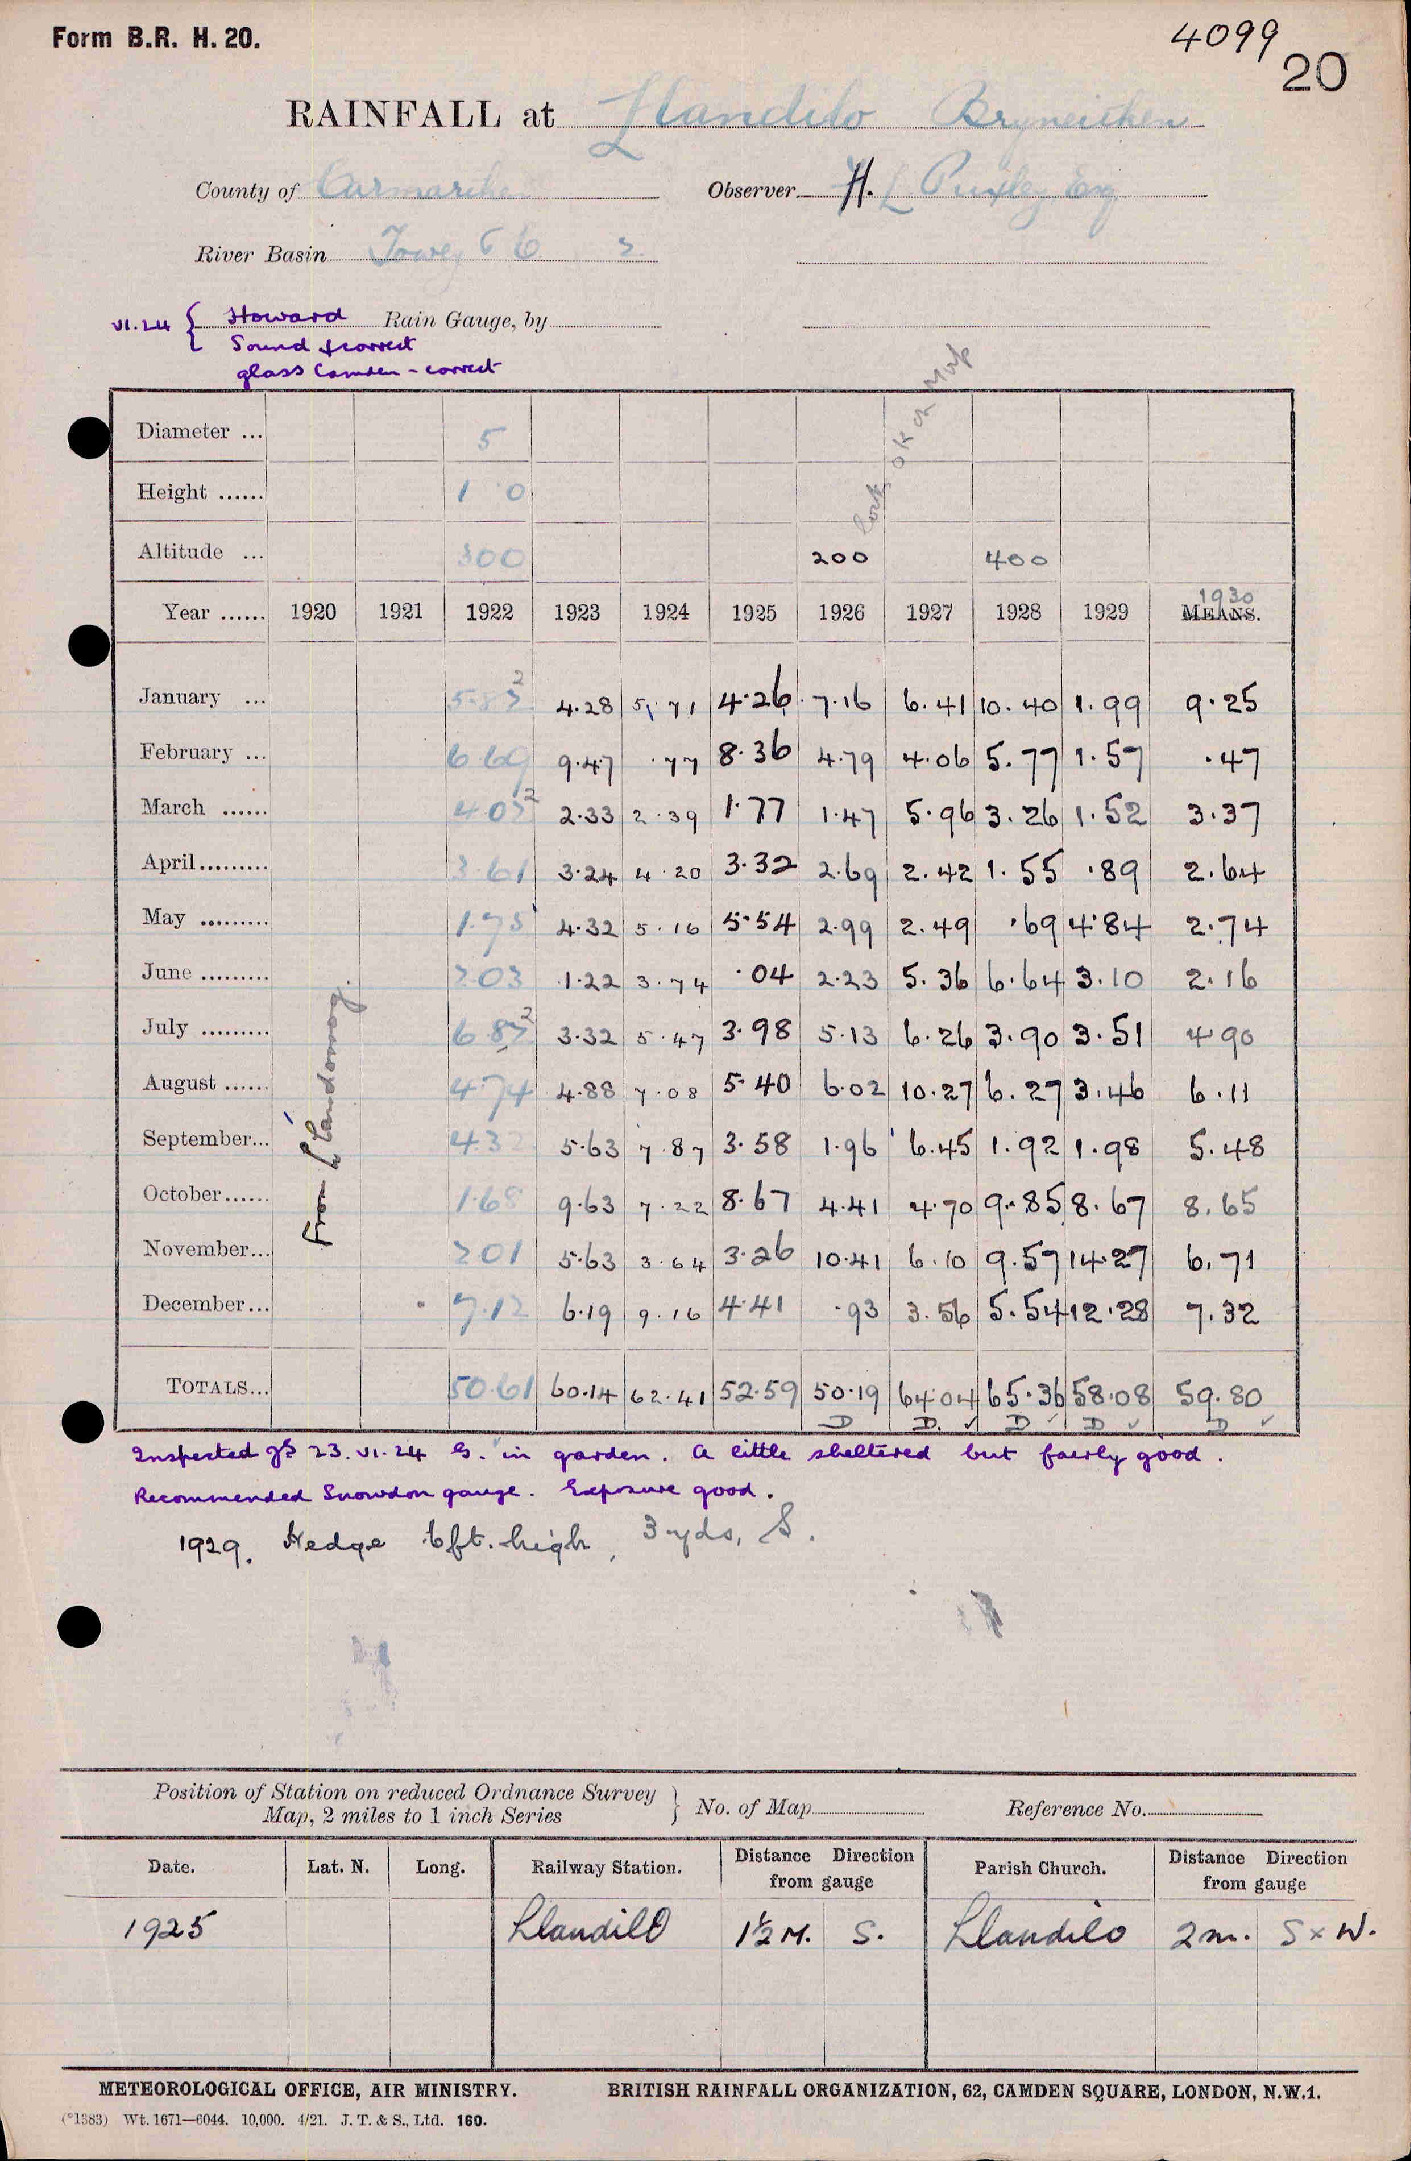 Form B.R. H. 20.
4099
20
RAINFALL at Llandilo Bryneithen
County of Carmarthen Observer H. L Puxley Esq
River Basin Towey
VI.24 { Howard Rain Gauge, by
Sound & correct
glass Camden - correct
OK on Map
Diameter ... 5
Height ...... 1 0
Altitude ... 300 200 400
Year ...... 1920 1921 1922 1923 1924 1925 1926 1927 1928 1929 MEANS. 1930
January ... 5.82 4.28 5.71 4.26 7.16 6.41 10.40 1.99 9.25
February ... 6.69 9.47 .77 8.36 4.79 4.06 5.77 1.57 .47
March ...... 4.02 2.33 2.39 1.77 1.47 5.96 3.26 1.52 3.37
April ......... 3.61 3.24 4.20 3.32 2.69 2.42 1.55 .89 2.64
May ......... 1.75 4.32 5.16 5.54 2.99 2.49 .69 4.84 2.74
June ......... 2.03 1.22 3.74 .04 2.23 5.36 6.64 3.10 2.16
July ......... 6.82 3.32 5.47 3.98 5.13 6.26 3.90 3.51 4.90
August ...... 4.74 4.88 7.08 5.40 6.02 10.27 6.27 3.46 6.11
September... 4.32 5.63 7.87 3.58 1.96 6.45 1.92 1.98 5.48
October...... 1.68 9.63 7.22 8.67 4.41 4.70 9.85 8.67 8.65
November... 2.01 5.63 3.64 3.26 10.41 6.10 9.57 14.27 6.71
December... 7.12 6.19 9.16 4.41 .93 3.56 5.54 12.28 7.32
TOTALS... 50.61 60.14 62.41 52.59 50.19 64.04 65.36 58.08 59.80
D D. ✓ D ✓ D ✓ D ✓
Inspected 23.VI.24 G. in garden. A little sheltered but fairly good.
Recommended Snowdon gauge. Exposure good.
1929. Hedge 6ft. high, 3 yds, S.
Position of Station on reduced Ordnance Survey
Map, 2 miles to 1 inch Series } No. of Map Reference No.
Date. Lat. N. Long. Railway Station. Distance Direction from gauge Parish Church. Distance Direction from gauge
1925 Llandilo 1½ M. S. Llandilo 2m. S x W.
METEOROLOGICAL OFFICE, AIR MINISTRY. BRITISH RAINFALL ORGANIZATION, 62, CAMDEN SQUARE, LONDON, N.W.1.
(*1383) Wt. 1671—6044. 10,000. 4/21. J. T. & S., Ltd. 160.